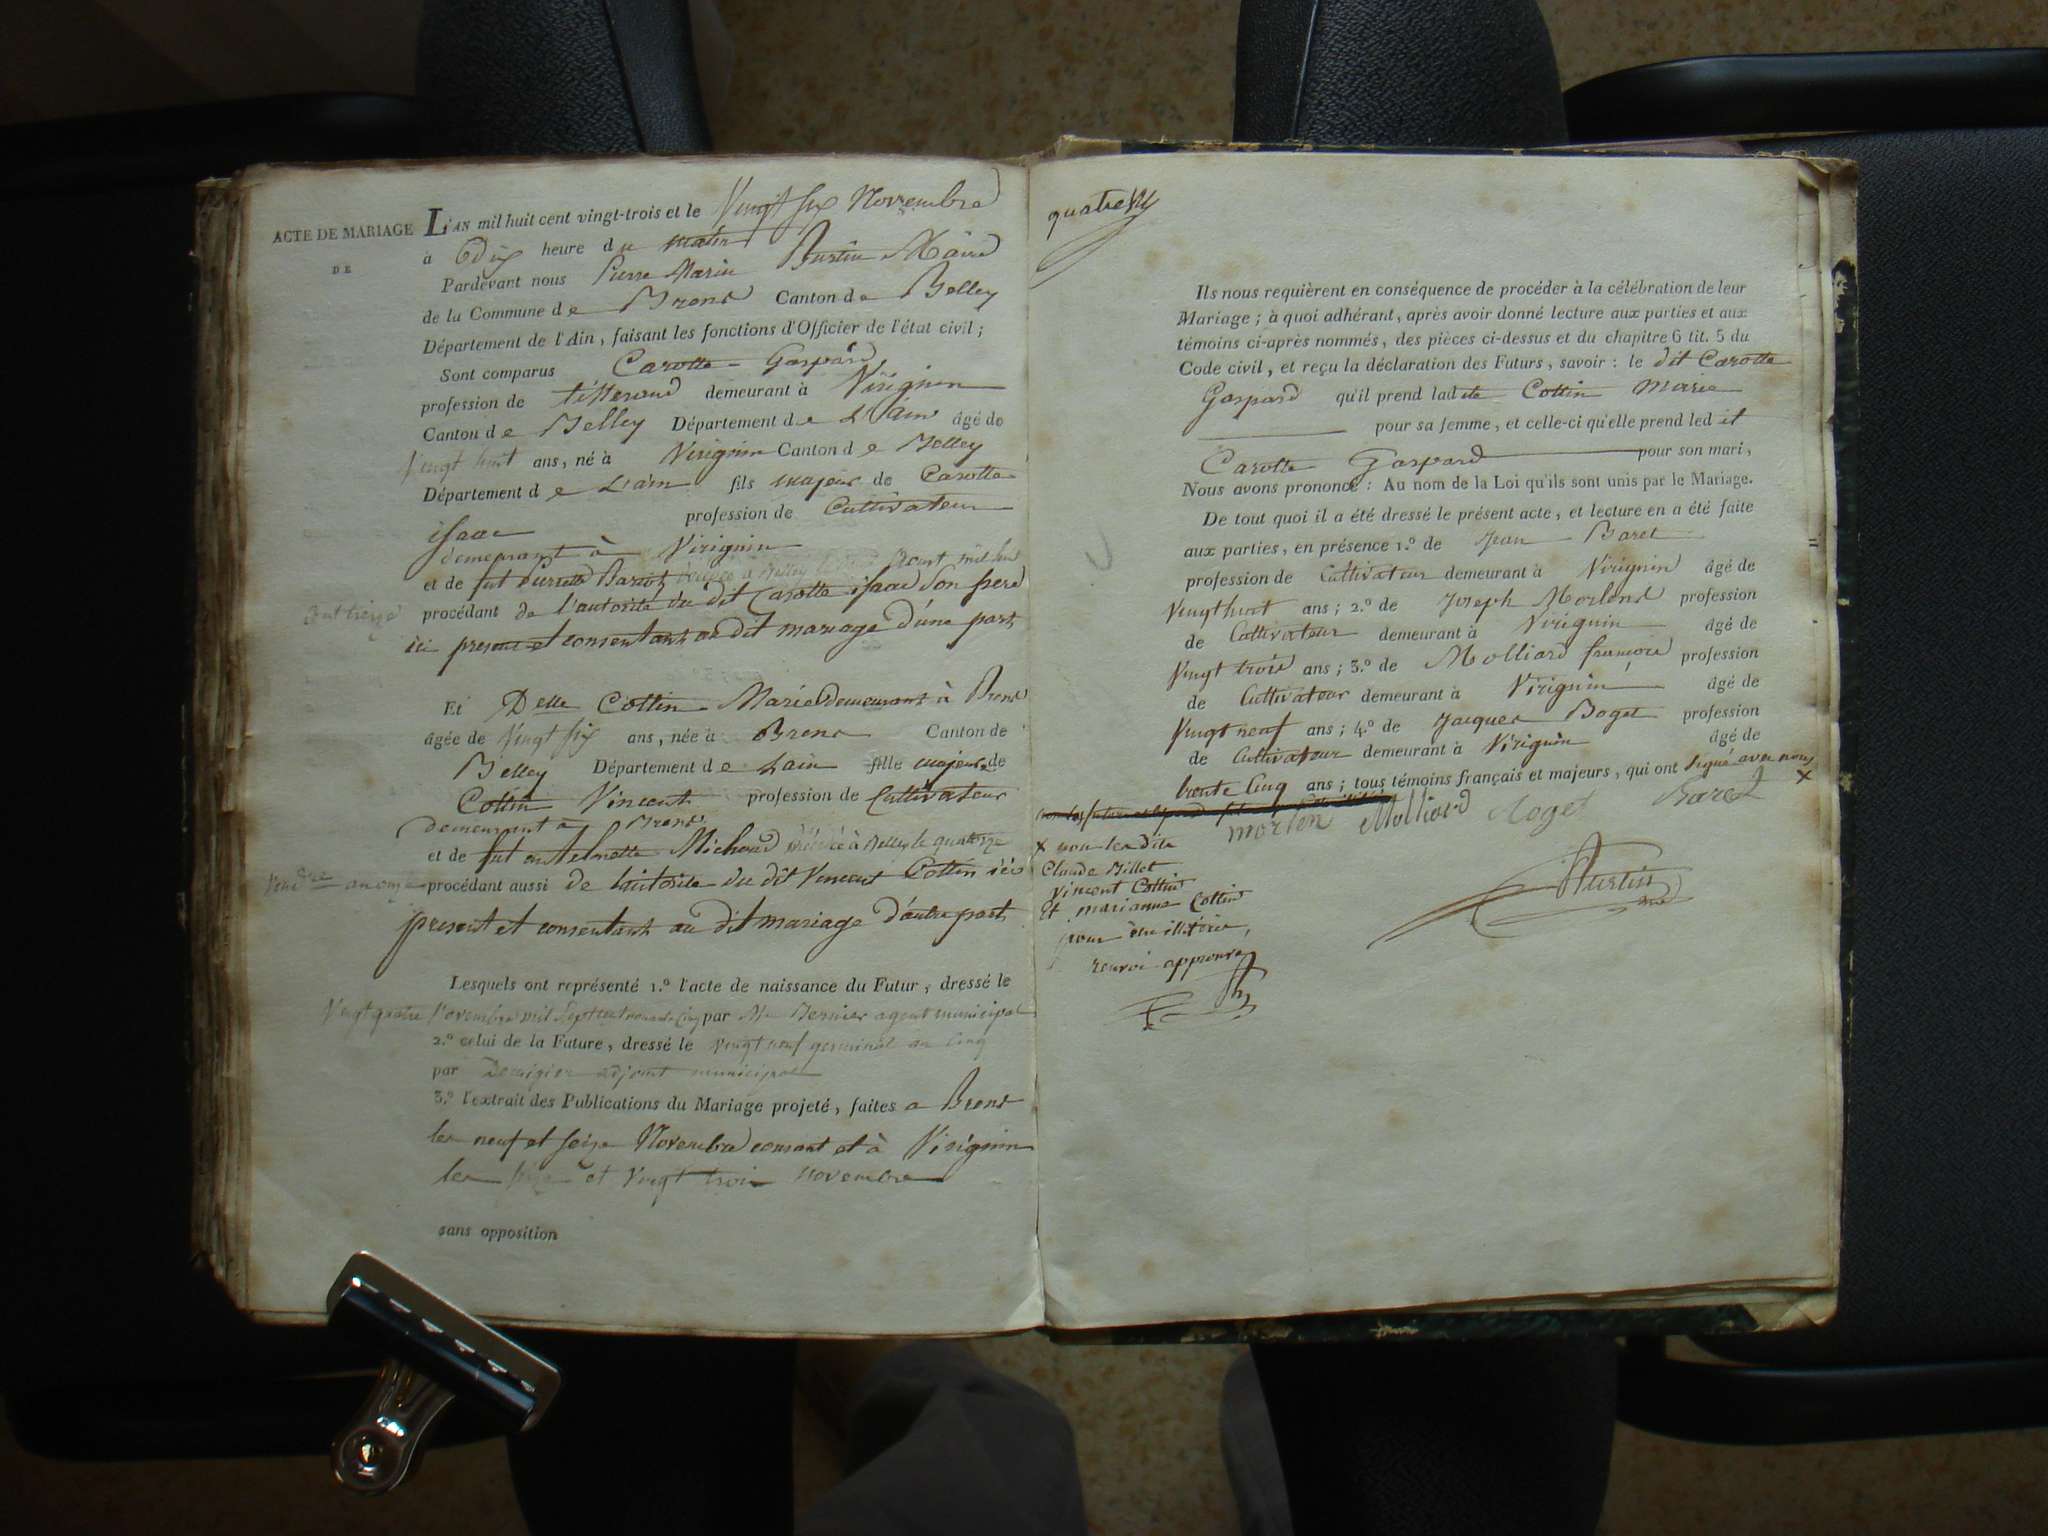 ACTE DE MARIAGE
DE
L'AN mil huit cent vingt-trois et le Vingt six Novembre
à dix heure du matin
Pardevant nous Pierre Marin Burtin Maire
de la Commune de Brens Canton de Belley
Département de l'Ain, faisant les fonctions d'Officier de l'état civil;
Sont comparus Carotte Gaspard
profession de tisserand demeurant à Virignin
Canton de Belley Département de L'ain âgé de
Vingt huit ans, né à Virignin Canton de Belley
Département de L'ain fils majeur de Carotte
isaac profession de Cultivateur
demeurant à Virignin
et de fut Pierrette décédée à Belley aout mil huit
cent treize
procédant de l'autorité du dit Carotte isaac son pere
ici present et consentant au dit mariage d'une part
Et Delle Cottin Marie demeurant à Brens
âgée de Vingt six ans, née à Brens Canton de
Belley Département de L'ain fille majeure de
Cottin Vincent profession de Cultivateur
demeurant à Brens
et de fut antelmette Michaud décédée à Belley le quatorze
Vendre an onze
procédant aussi de l'autorité du dit Vincent Cottin ici
present et consentant au dit mariage d'autre part
Lesquels ont représenté 1.º l'acte de naissance du Futur, dressé le
Vingt quatre Novembre mil Sept cent nonante Cinq par Mr Bernier agent municipal
2.º celui de la Future, dressé le vingt neuf germinal an Cinq
par adjoint municipal
3.º l'extrait des Publications du Mariage projeté, faites a Brens
les neuf et seize Novembre courant et à Virignin
les seize et Vingt trois novembre
sans opposition
Ils nous requièrent en conséquence de procéder à la célébration de leur
Mariage; à quoi adhérant, après avoir donné lecture aux parties et aux
témoins ci-après nommés, des pièces ci-dessus et du chapitre 6 tit. 5 du
Code civil, et reçu la déclaration des Futurs, savoir: le dit Carotte
Gaspard qu'il prend ladite Cottin Marie
pour sa femme, et celle-ci qu'elle prend ledit
Carotte Gaspard pour son mari,
Nous avons prononcé: Au nom de la Loi qu'ils sont unis par le Mariage.
De tout quoi il a été dressé le présent acte, et lecture en a été faite
aux parties, en présence 1.º de Jean Baret
profession de Cultivateur demeurant à Virignin âgé de
Vingt huit ans; 2.º de Joseph Morland profession
de Cultivateur demeurant à Virignin âgé de
Vingt trois ans; 3.º de Molliard françois profession
de Cultivateur demeurant à Virignin âgé de
Vingt neuf ans; 4.º de Jacques Boget profession
de Cultivateur demeurant à Virignin âgé de
trente Cinq ans; tous témoins français et majeurs, qui ont signé avec nous
x
morlon Molliard Boget Baret
x non les dits
Claude Billet
Vincent Cottin
Et marianne Cottin
pour être illitérés,
renvoi approuvé
Burtin